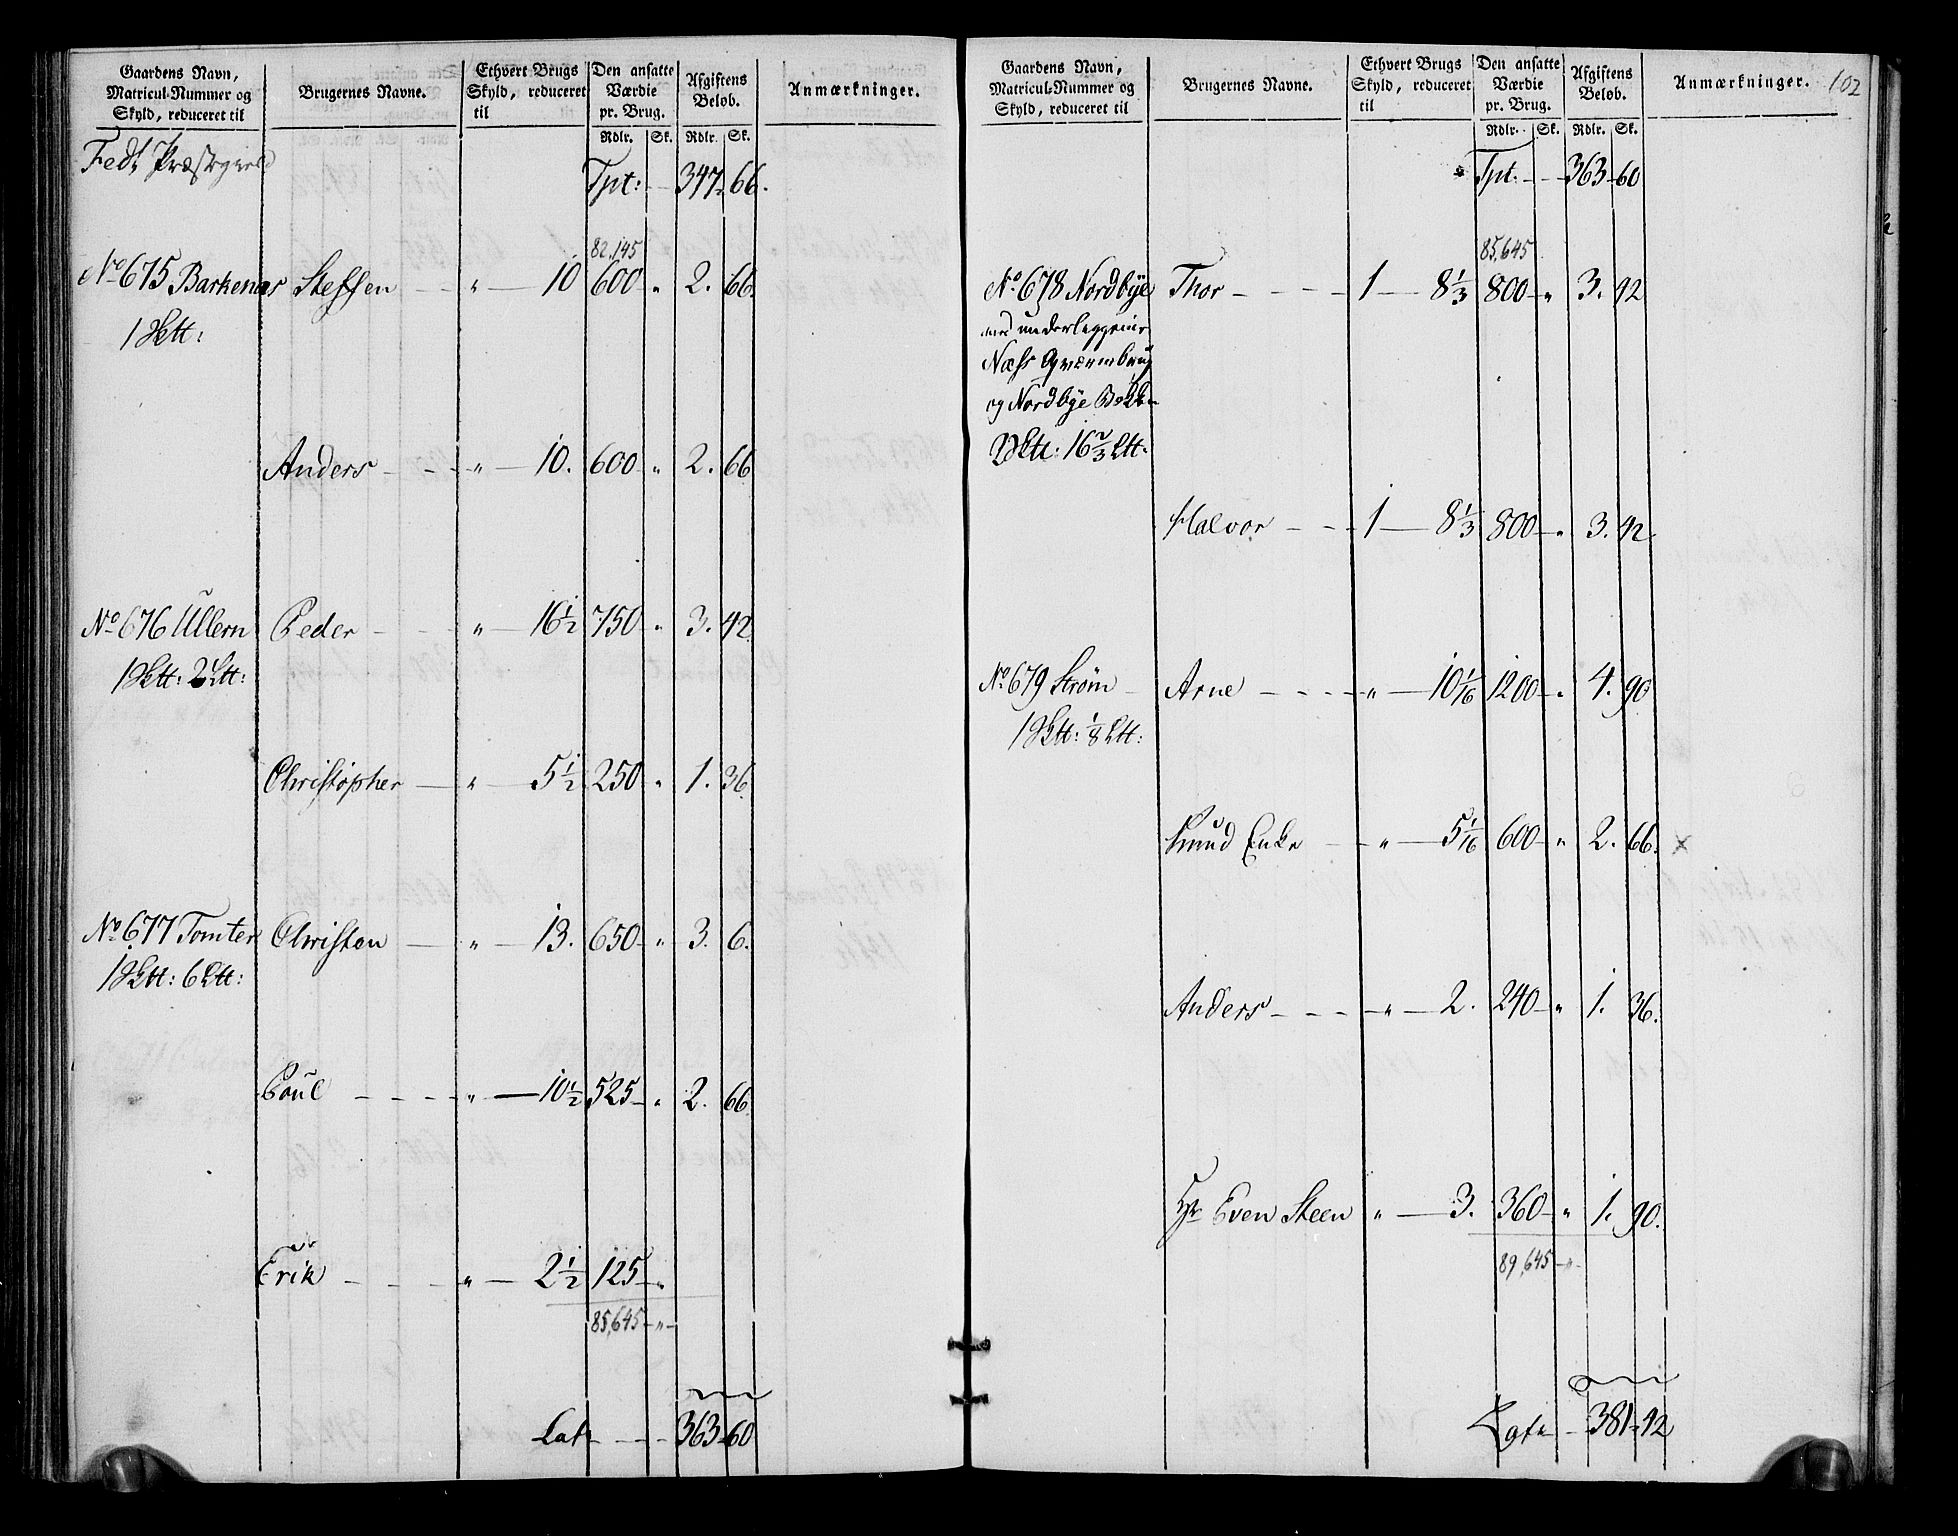 Gaardens Navn,
Matricul-Nummer og
Skyld, reduceret til
Brugernes Navne.
Ethvert Brugs
Skyld, reduceret
til
Den ansatte
Værdie
pr. Brug.
Rdlr. Sk.
Afgiftens
Beløb.
Rdlr. Sk.
Anmærkninger.
Fedt Præstegield
Tpt: 347 66.
82,145
No 675 Barkenæs Steffen " 10 600 " 2. 66.
1 Sktt:
Anders " 10. 600 " 2. 66
No 676 Ullern Peder " 16½ 750 " 3. 42.
1 Sktt: 2 Ltt:
Christopher " 5½ 250 " 1. 36.
No 677 Tomter Christen " 13. 650 " 3. 6.
1 Sktt: 6 Ltt:
Poul " 10½ 525 " 2. 66.
Erik " 2½ 125 "
85,645 "
Lat 363 60
Gaardens Navn,
Matricul-Nummer og
Skyld, reduceret til
Brugernes Navne.
Ethvert Brugs
Skyld, reduceret
til
Den ansatte
Værdie
pr. Brug.
Rdlr. Sk.
Afgiftens
Beløb.
Rdlr. Sk.
Anmærkninger.
102
Tpt. 363 60
85,645
No 678 Nordbÿe Thor 1 8⅓ 800 " 3. 42
underleggende
Næss Qværnbrug
og Nordbye Bekken
2 Sktt: 16⅔ Ltt:
Halvor 1 8⅓ 800 " 3. 42
No 679 Strøm Arne " 10 1/16 1200 " 4. 90
1 Sktt: ⅛ Ltt:
Knud Enke " 5 1/16 600 " 2. 66. x
Anders " 2. 240 " 1. 36.
Hr Even Steen " 3. 360 " 1. 90.
89,645 "
Lat 381 42